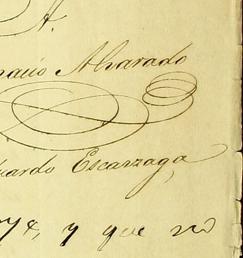 A.
nacio Alvarado
uardo Escarzaga
74, y que no